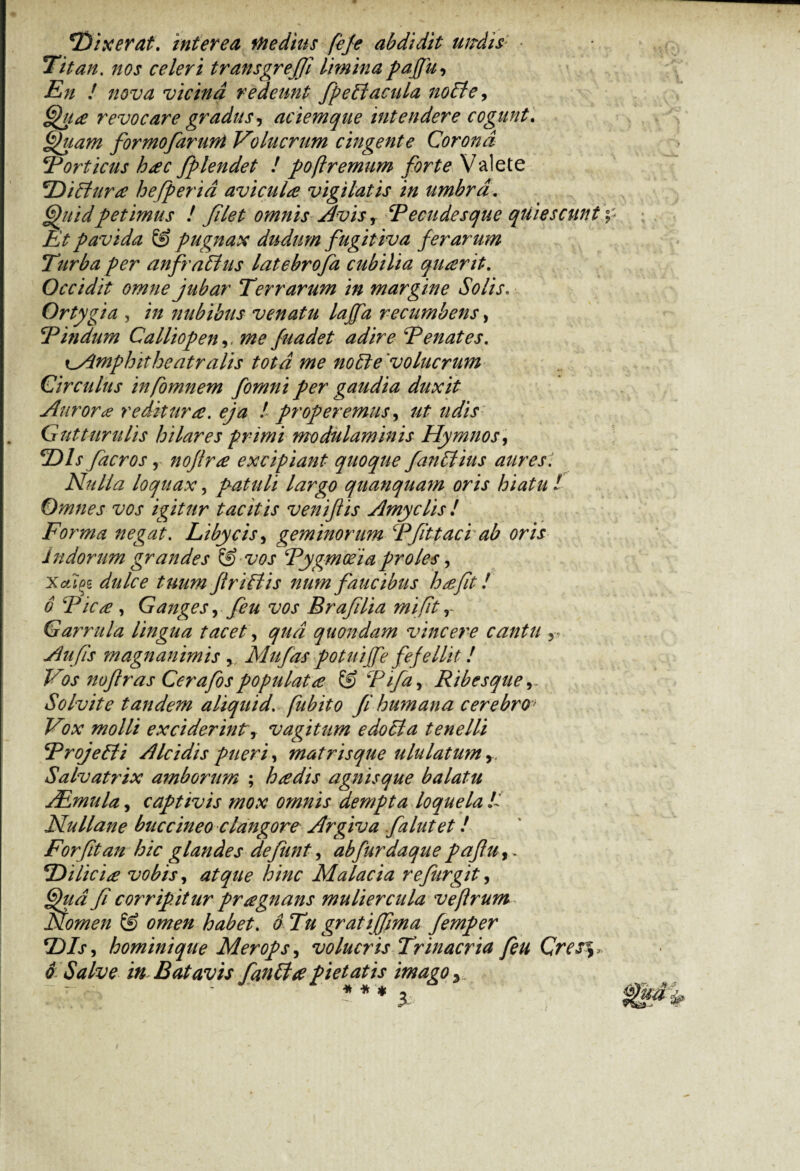 Dixerat. interea medius ſeſe abdidit undis
Titan. nos celeri transgreſſi limina paſſu,
En ! nova vicinâ redeunt ſpectacula nocte,
Quæ revocare gradus, aciemque intendere cogunt.
Quam formoſarum Volucrum cingente Coronâ
Porticus hæc ſplendet ! poſtremum forte Valete
Dicturæ heſperiâ aviculæ vigilatis in umbrâ.
Quid petimus ! ſilet omnis Avis, Pecudesque quiescunt;
Et pavida & pugnax dudum fugitiva ferarum
Turba per anfractus latebroſa cubilia quærit.
Occidit omne jubar Terrarum in margine Solis.
Ortygia , in nubibus venatu laſſa recumbens,
Pindum Calliopen, me ſuadet adire Penates.
Amphitheatralis totâ me nocte volucrum
Circulus inſomnem ſomni per gaudia duxit
Auroræ redituræ. eja ! properemus, ut udis
Gutturulis hilares primi modulaminis Hymnos,
DIs ſacros, noſtræ excipiant quoque ſanctius aures.
Nulla loquax, patuli largo quanquam oris hiatu !
Omnes vos igitur tacitis veniſtis Amyclis !
Forma negat. Libycis, geminorum Pſittaci ab oris
Indorum grandes & vos Pygmœïa proles,
χαῖρε dulce tuum ſtrictis num faucibus hæſit !
ô Picæ , Ganges, ſeu vos Braſilia miſit,
Garrula lingua tacet, quâ quondam vincere cantu,
Auſis magnanimis, Muſas potuiſſe fefellit !
Vos noſtras Ceraſos populatæ & Piſa, Ribesque,
Solvite tandem aliquid. ſubito ſi humana cerebro
Vox molli exciderint, vagitum edocta tenelli
Projecti Alcidis pueri, matrisque ululatum,
Salvatrix amborum ; hædis agnisque balatu
Æmula, captivis mox omnis dempta loquela !
Nullane buccineo clangore Argiva ſalutet !
Forſitan hic glandes deſunt, abſurdaque paſtu,
Diliciæ vobis, atque hinc Malacia reſurgit,
Quâ ſi corripitur prægnans muliercula veſtrum
Nomen & omen habet. ô Tu gratiſſima ſemper
DIs, hominique Merops, volucris Trinacria ſeu Cres;
ô Salve in Batavis ſanctæ pietatis imago,
* * * 3 Quâ